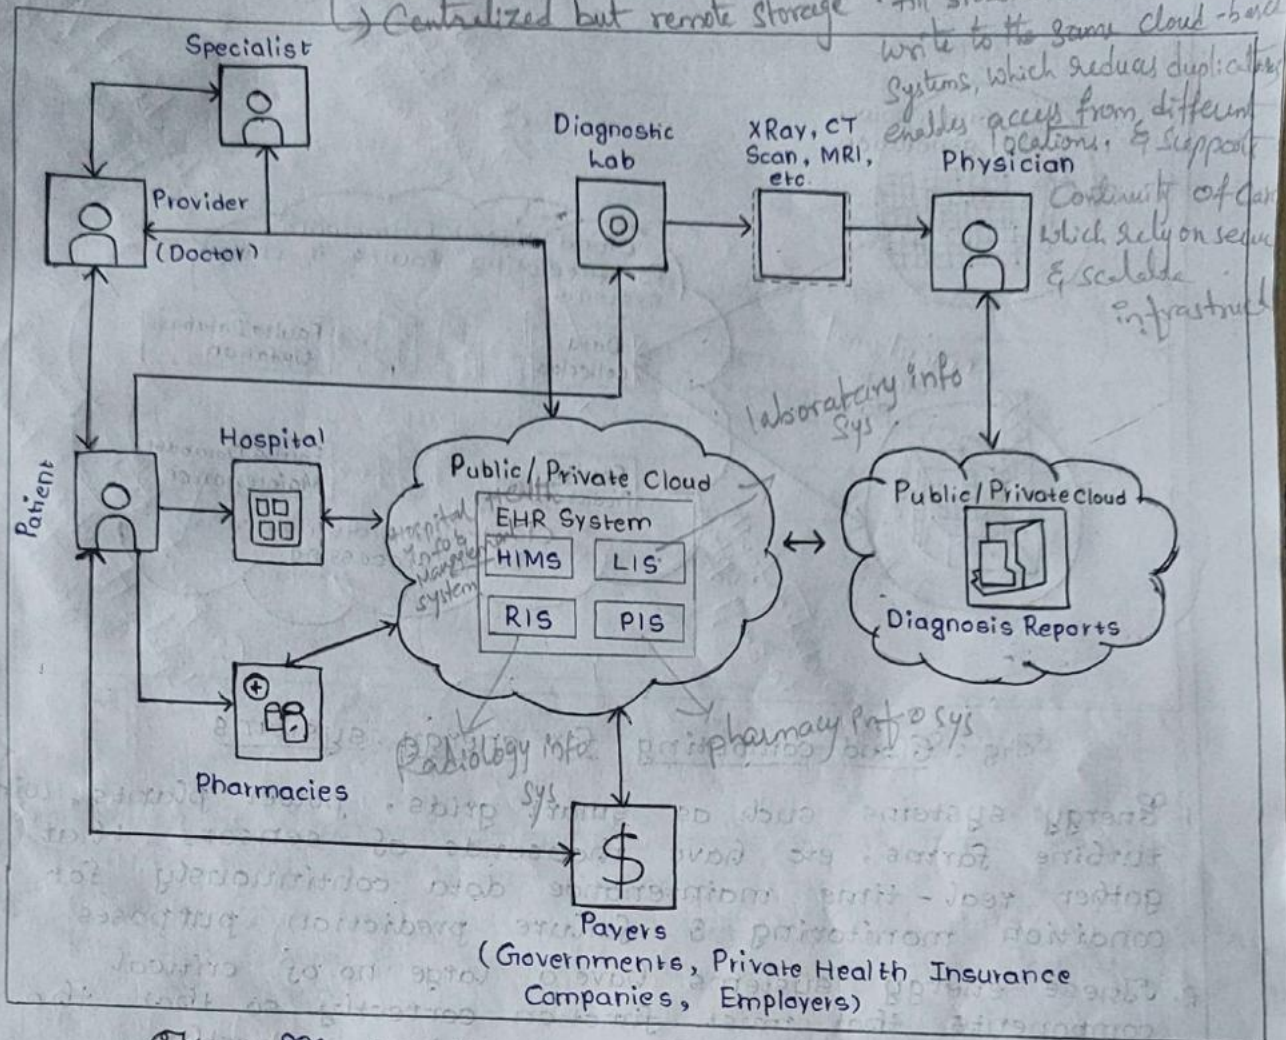 (→ Centralized but remote storage
write to the same cloud-based
systems, which reduces duplication,
enables access from different
locations, & support
Continuity of care
which rely on secure
& scalable
infrastruct
Specialist
Provider
(Doctor)
Diagnostic
Lab
XRay, CT
Scan, MRI,
etc.
Physician
Patient
Hospital
Pharmacies
Public/Private Cloud
EHR System
HIMS
LIS
RIS
PIS
Hospital
info &
Management
system
Health
laboratary info
sys
Radiology info
sys
pharmacy info sys
Public/Private Cloud
Diagnosis Reports
$
Payers
(Governments, Private Health Insurance
Companies, Employers)